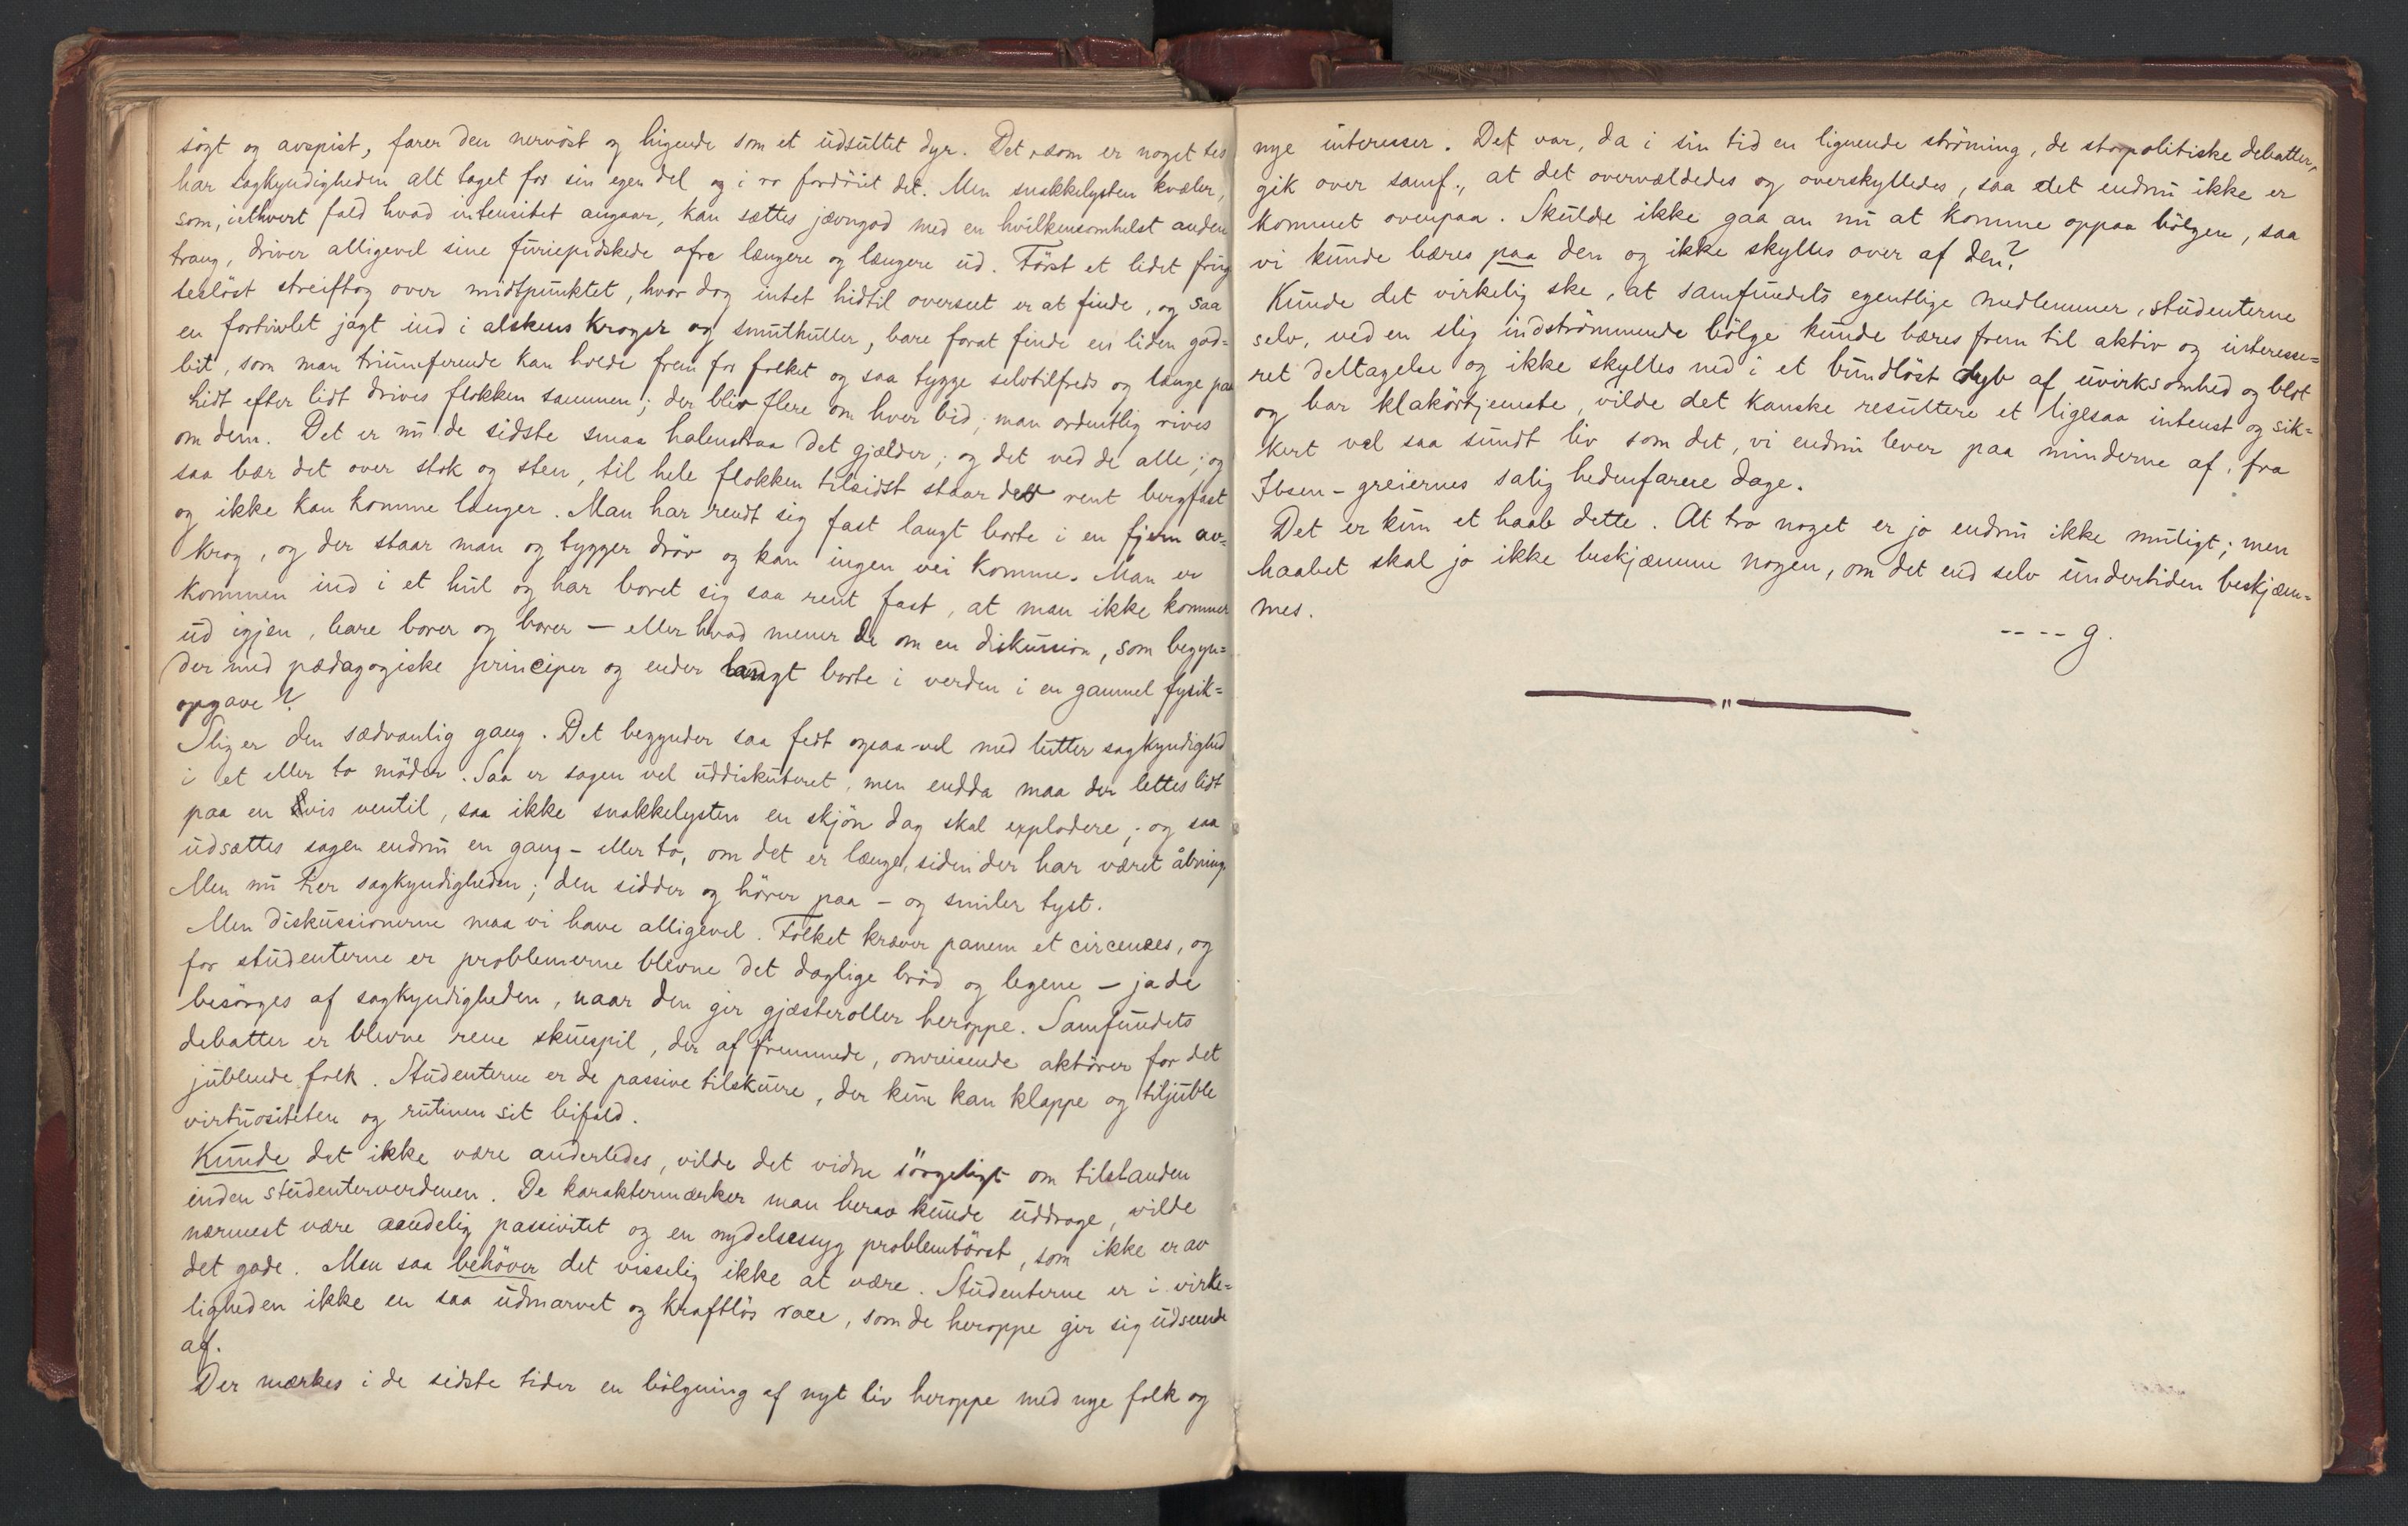 søgt og avspist, farer den nervøst og higende som et udsultet dyr. Det, som er noget
har sagkyndigheden alt taget for sin egen del og i ro fordøiet det. Men snakkelysten kvæler,
som, ialhvert fald hvad intensitet angaar, kan sættes jævngod med en hvilkensomhelst anden
trang, driver alligevel sine furiepidskede ofre længere og længere ud. Først et lidet frug
tesløst streiftog over midtpunktet, hvor dog intet hidtil overseet er at finde, og saa
en fortvivlet jagt ind i alskens kroger og smuthuller, bare forat finde en liden god=
bit, som man triumferende kan holde frem for folket og saa tygge selvtilfreds og længe paa
lidt efter lidt drives flokken sammen; der bliv flere om hver bid; man ordentlig rives
om dem. Det er nu de sidste smaa halmstraa det gjælder; og det ved de alle; og
saa bær det over stok og sten, til hele flokken tilsidst staar dett rent bergfast
og ikke kan komme længer. Man har rendt sig fast langt borte i en fjern av=
krog, og der staar man og tygger drøv og kan ingen vei komme. Man er
kommen ind i et hul og har boret sig saa rent fast, at man ikke kommer
ud igjen, bare borer og borer – eller hvad mener de om en diskussion, som begyn=
der med pædagogiske principer og ender langt borte i verden i en gammel fysik=
opgave?
Slig er den sædvanlig gang. Det begynder saa fedt ogsaa vel med lutter sagkyndighed
i et eller to møder. Saa er sagen vel uddiskuteret, men endda maa der lettes lidt
paa en vis ventil, saa ikke snakkelysten en skjøn dag skal explodere; og saa
udsættes sagen endnu en gang – eller to, om det er længe, siden der har været åbning.
Men nu tier sagkyndigheden; den sidder og hører paa – og smiler tyst.
Men diskussionerne maa vi have alligevel. Folket kræver panem et circenses, og
for studenterne er problemerne blevne det daglige brød og legene – ja de
besørges af sagkyndigheden, naar den gir gjæsteroller heroppe. Samfundets
debatter er blevne rene skuespil, der af fremmede, omreisende aktører for det
jublende folk. Studenterne er de passive tilskuere, der kun kan klappe og tiljuble
virtuositeten og rutinen sit bifald.
Kunde det ikke være anderledes, vilde det vidne sørgeligt om tilstanden
inden studenterverdenen. De karaktermærker man herav kunde uddrage, vilde
nærmest være aandelig passivitet og en nydelsessyg problemtørst, som ikke er av
det gode. Men saa behøver det visselig ikke at være. Studenterne er i virke=
ligheden ikke en saa udmarvet og kraftløs race, som de heroppe gir sig udseende
af.
Der mærkes i de sidste tider en bølgning af nyt liv heroppe med nye folk og
nye interesser. Det var, da i sin tid en lignende strømning, de storpolitiske debatter,
gik over samf., at det overvældedes og overskylledes, saa det endnu ikke er
kommet ovenpaa. Skulde ikke gaa an nu at komme oppaa bølgen, saa
vi kunde bæres paa den og ikke skylles over af den?
Kunde det virkelig ske, at samfundets egentlige medlemmer, studenterne
selv, ved en slig indstrømmende bølge kunde bæres frem til aktiv og interesse=
ret deltagelse og ikke skylles ned i et bundløst dyb af uvirksomhed og blot
og bar klakørtjeneste, vilde det kanske resultere et ligesaa intenst og sik=
kert vel saa sundt liv som det, vi endnu lever paa minderne af, fra
Ibsen-greiernes salig hedenfarne dage.
Det er kun et haab dette. At tro noget er jo endnu ikke muligt; men
haabet skal jo ikke beskjæmme nogen, om det end selv undertiden beskjæm=
mes.
---- g.